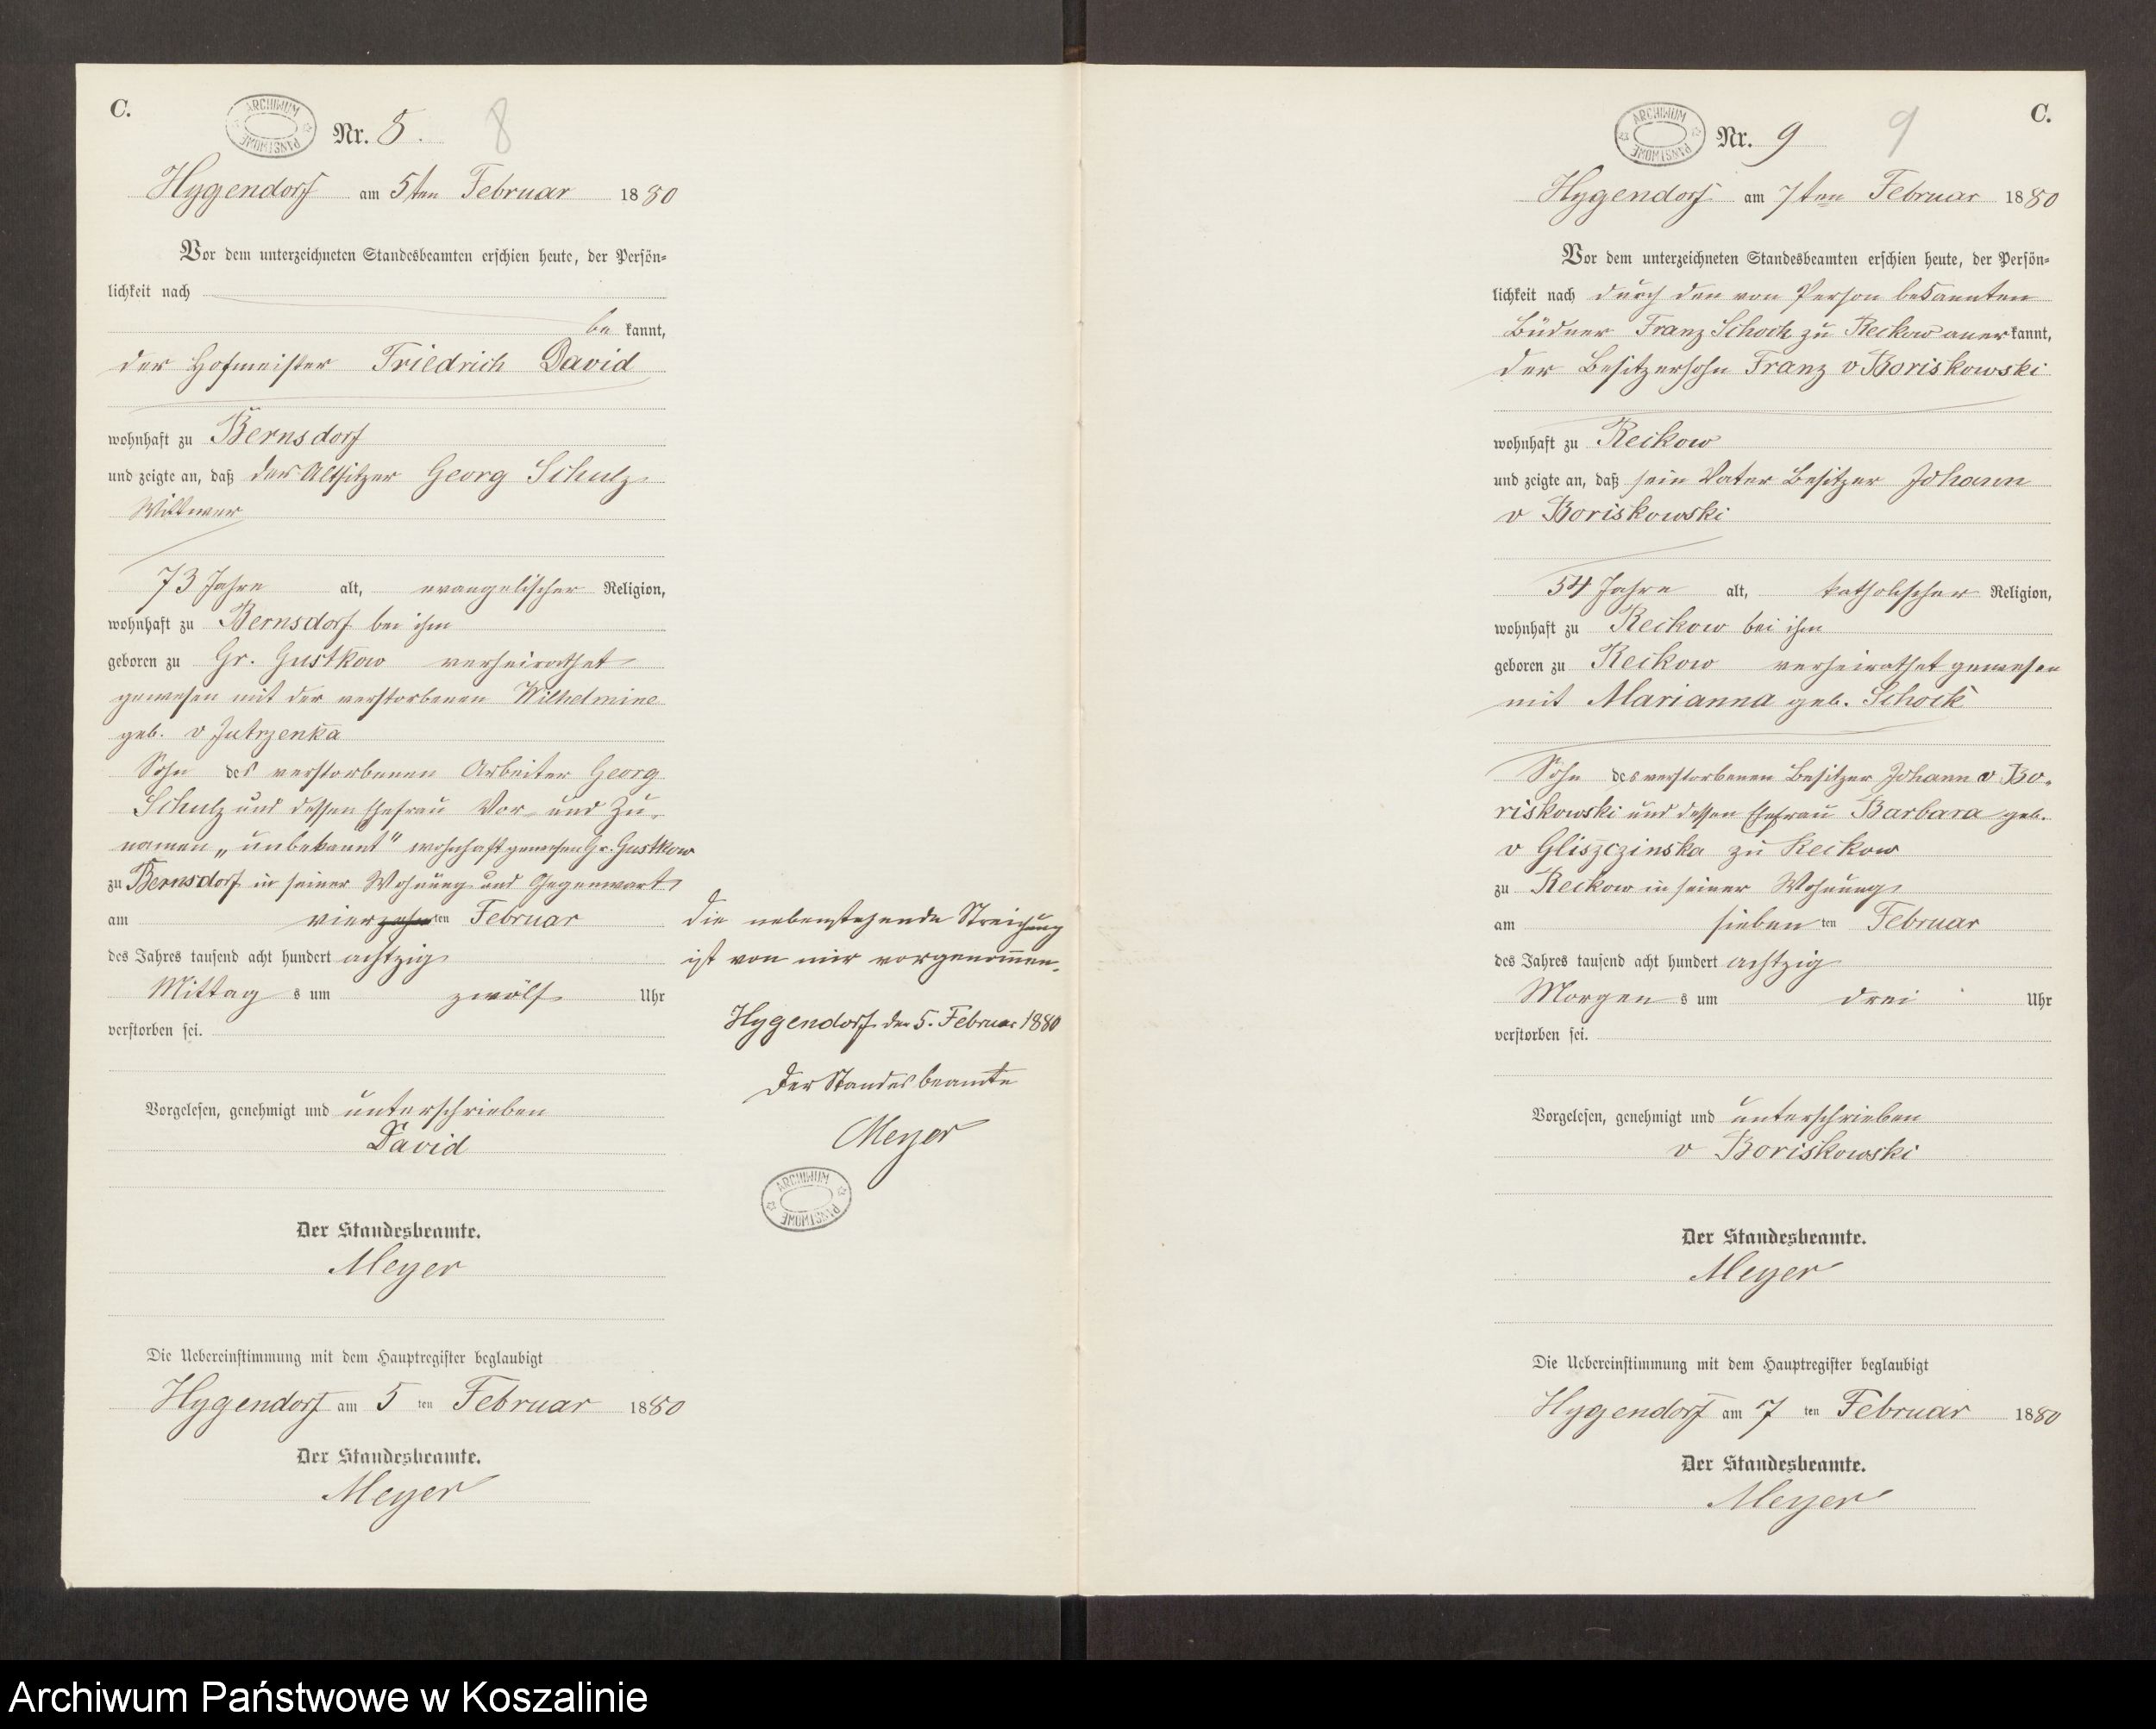 C.
ARCHIWUM PAŃSTWOWE
Nr. 8.
8
Hygendorf am 5ten Februar 1880
Vor dem unterzeichneten Standesbeamten erschien heute, der Persön-
lichkeit nach
be kannt,
der Hofmeister Friedrich David
wohnhaft zu Bernsdorf
und zeigte an, daß der Altsitzer Georg Schulz
Wittwer
73 Jahre alt, evangelischer Religion,
wohnhaft zu Bernsdorf bei ihm
geboren zu Gr. Gustkow verheirathet
gewesen mit der verstorbenen Wilhelmine
geb. v Jutrzenka
Sohn des verstorbenen Arbeiter Georg
Schulz und dessen Ehefrau Vor- und Zu-
namen „unbekannt" wohnhaft gewesen Gr. Gustkow
zu Bernsdorf in seiner Wohnung und Gegenwart
am vierzehnten Februar
des Jahres tausend acht hundert achtzig
Mittag s um zwölf Uhr
verstorben sei.
Vorgelesen, genehmigt und unterschrieben
David
Der Standesbeamte.
Meyer
Die Uebereinstimmung mit dem Hauptregister beglaubigt
Hygendorf am 5 ten Februar 1880
Der Standesbeamte.
Meyer
die nebenstehende Streichung
ist von mir vorgenommen.
Hygendorf den 5. Februar 1880
Der Standesbeamte
Meyer
ARCHIWUM PAŃSTWOWE
C.
ARCHIWUM PAŃSTWOWE
Nr. 9
9
Hygendorf am 7ten Februar 1880
Vor dem unterzeichneten Standesbeamten erschien heute, der Persön-
lichkeit nach durch den von Person bekannten
Büdner Franz Schock zu Reckow aner kannt,
der Besitzersohn Franz v Boriskowski
wohnhaft zu Reckow
und zeigte an, daß sein Vater Besitzer Johann
v Boriskowski
54 Jahre alt, katholischer Religion,
wohnhaft zu Reckow bei ihm
geboren zu Reckow verheirathet gewesen
mit Marianna geb. Schock
Sohn des verstorbenen Besitzer Johann v Bo-
riskowski und dessen Ehefrau Barbara geb.
v Gliszczinska zu Reckow
zu Reckow in seiner Wohnung
am sieben ten Februar
des Jahres tausend acht hundert achtzig
Morgen s um drei Uhr
verstorben sei.
Vorgelesen, genehmigt und unterschrieben
v Boriskowski
Der Standesbeamte.
Meyer
Die Uebereinstimmung mit dem Hauptregister beglaubigt
Hygendorf am 7 ten Februar 1880
Der Standesbeamte.
Meyer
Archiwum Państwowe w Koszalinie